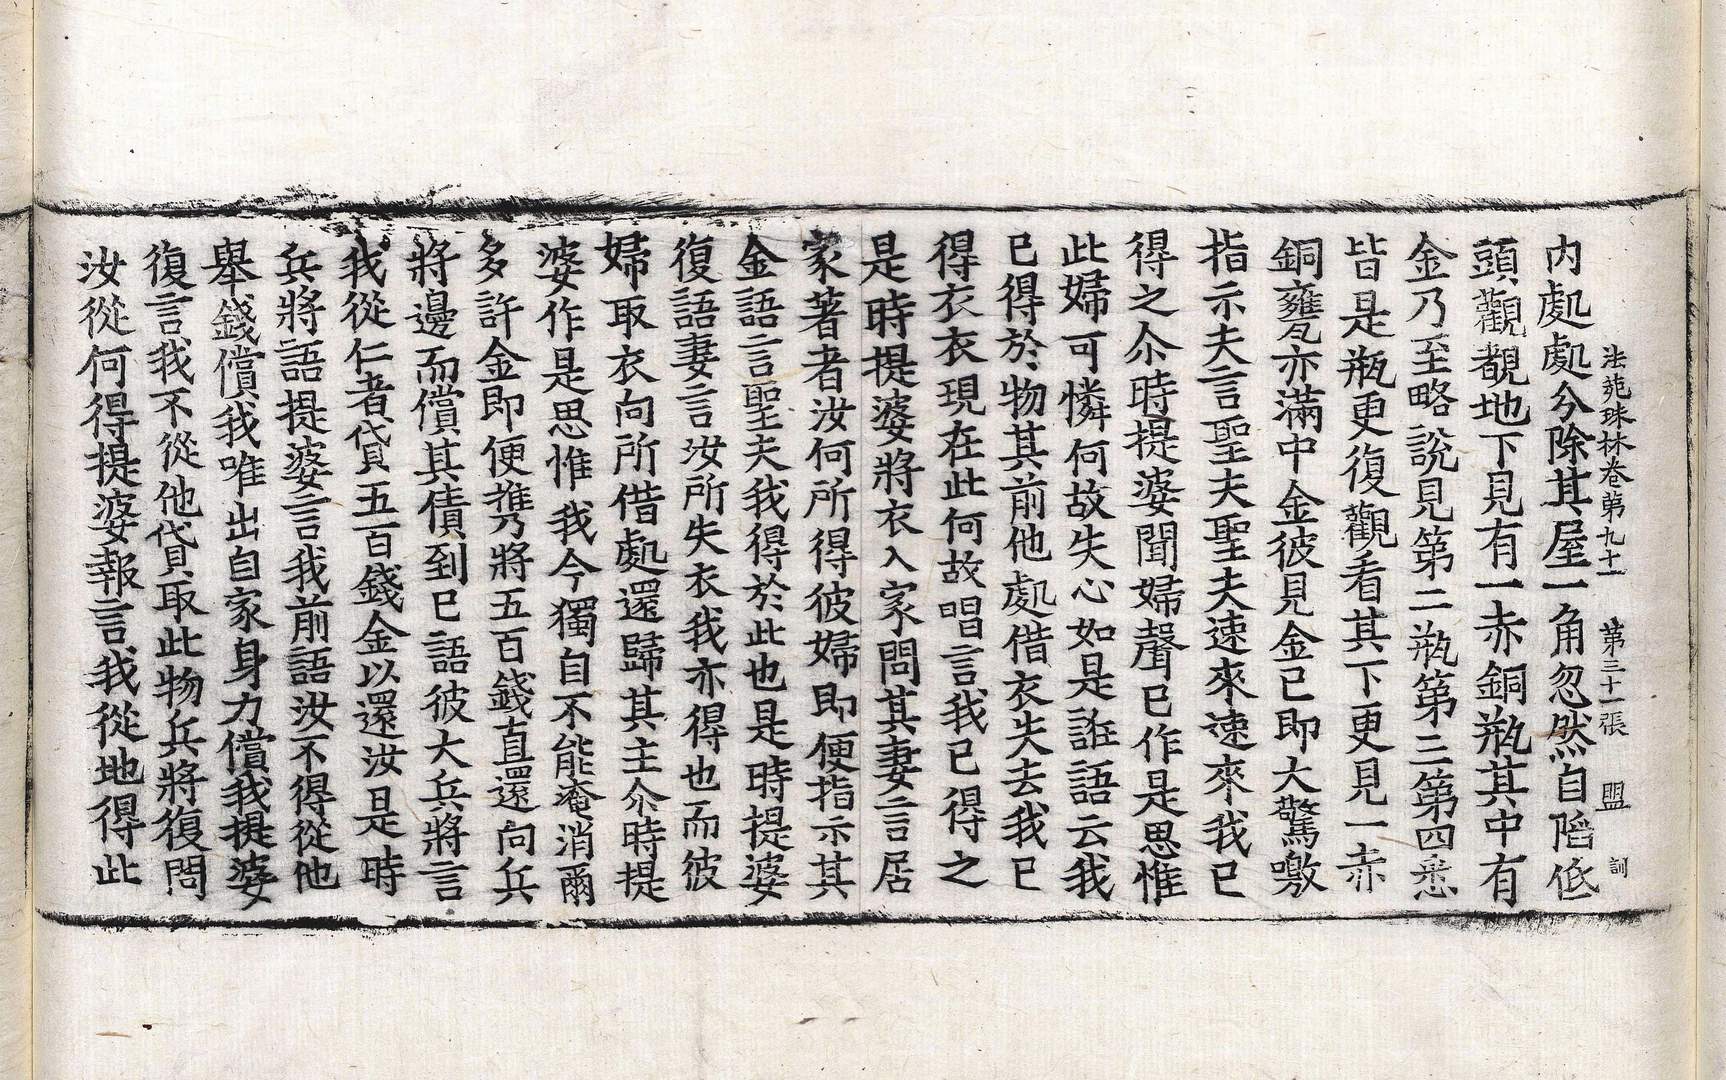 法苑珠林卷第九十一　第三十一張　盟　訓
内處處分除其屋一角忽然自陷低
頭觀覩地下見有一赤銅瓶其中有
金乃至略說見第二瓶第三第四悉
皆是瓶更復觀看其下更見一赤
銅甕瓦亦滿中金彼見金已即大驚噭
指示夫言聖夫聖夫速來速來我已
得之尒時提婆聞婦聲已作是思惟
此婦可憐何故失心如是誑語云我
已得於物其前他處借衣失去我已
得衣衣現在此何故唱言我已得之
是時提婆將衣入家問其妻言居
家著者汝何所得彼婦即便指示其
金語言聖夫我得於此也是時提婆
復語妻言汝所失衣我亦得也而彼
婦取衣向所借處還歸其主尒時提
婆作是思惟我今獨自不能淹消爾
多許金即便携將五百錢直還向兵
將邊而償其債到已語彼大兵將言
我從仁者貸五百錢金以還汝是時
兵將語提婆言我前語汝不得從他
舉錢償我唯出自家身力償我提婆
復言我不從他貸取此物兵將復問
汝從何得提婆報言我從地得此